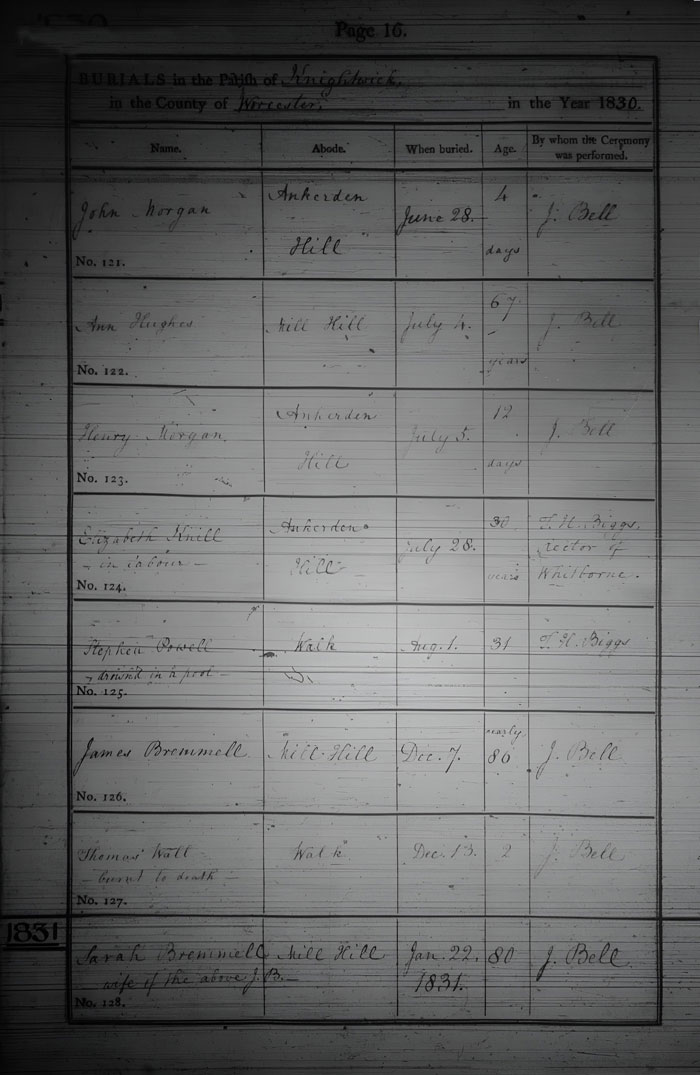 Page 16.
BURIALS in the Parish of Knightwick,
in the County of Worcester, in the Year 1830.
Name. Abode. When buried. Age. By whom the Ceremony was performed.
John Morgan Ankerden Hill June 28. 4 days J. Bell
No. 121.
Ann Hughes Mill Hill July 4. 67 years J. Bell
No. 122.
Henry Morgan. Ankerden Hill July 5. 12 days J. Bell
No. 123.
Elizabeth Knill Ankerden Hill July 28. 30 years T. H. Biggs, rector of Whitborne.
- in labour -
No. 124.
Stephen Powell Walk Aug. 1. 31 T. H. Biggs
- drown'd in a pool -
No. 125.
James Bremmell Mill Hill Dec. 7. nearly 86 J. Bell
No. 126.
Thomas Wall Walk Dec. 13. 2 J. Bell
- burnt to death -
No. 127.
1831
Sarah Bremmell Mill Hill Jan. 22. 1831. 80 J. Bell
wife of the above J. B. -
No. 128.